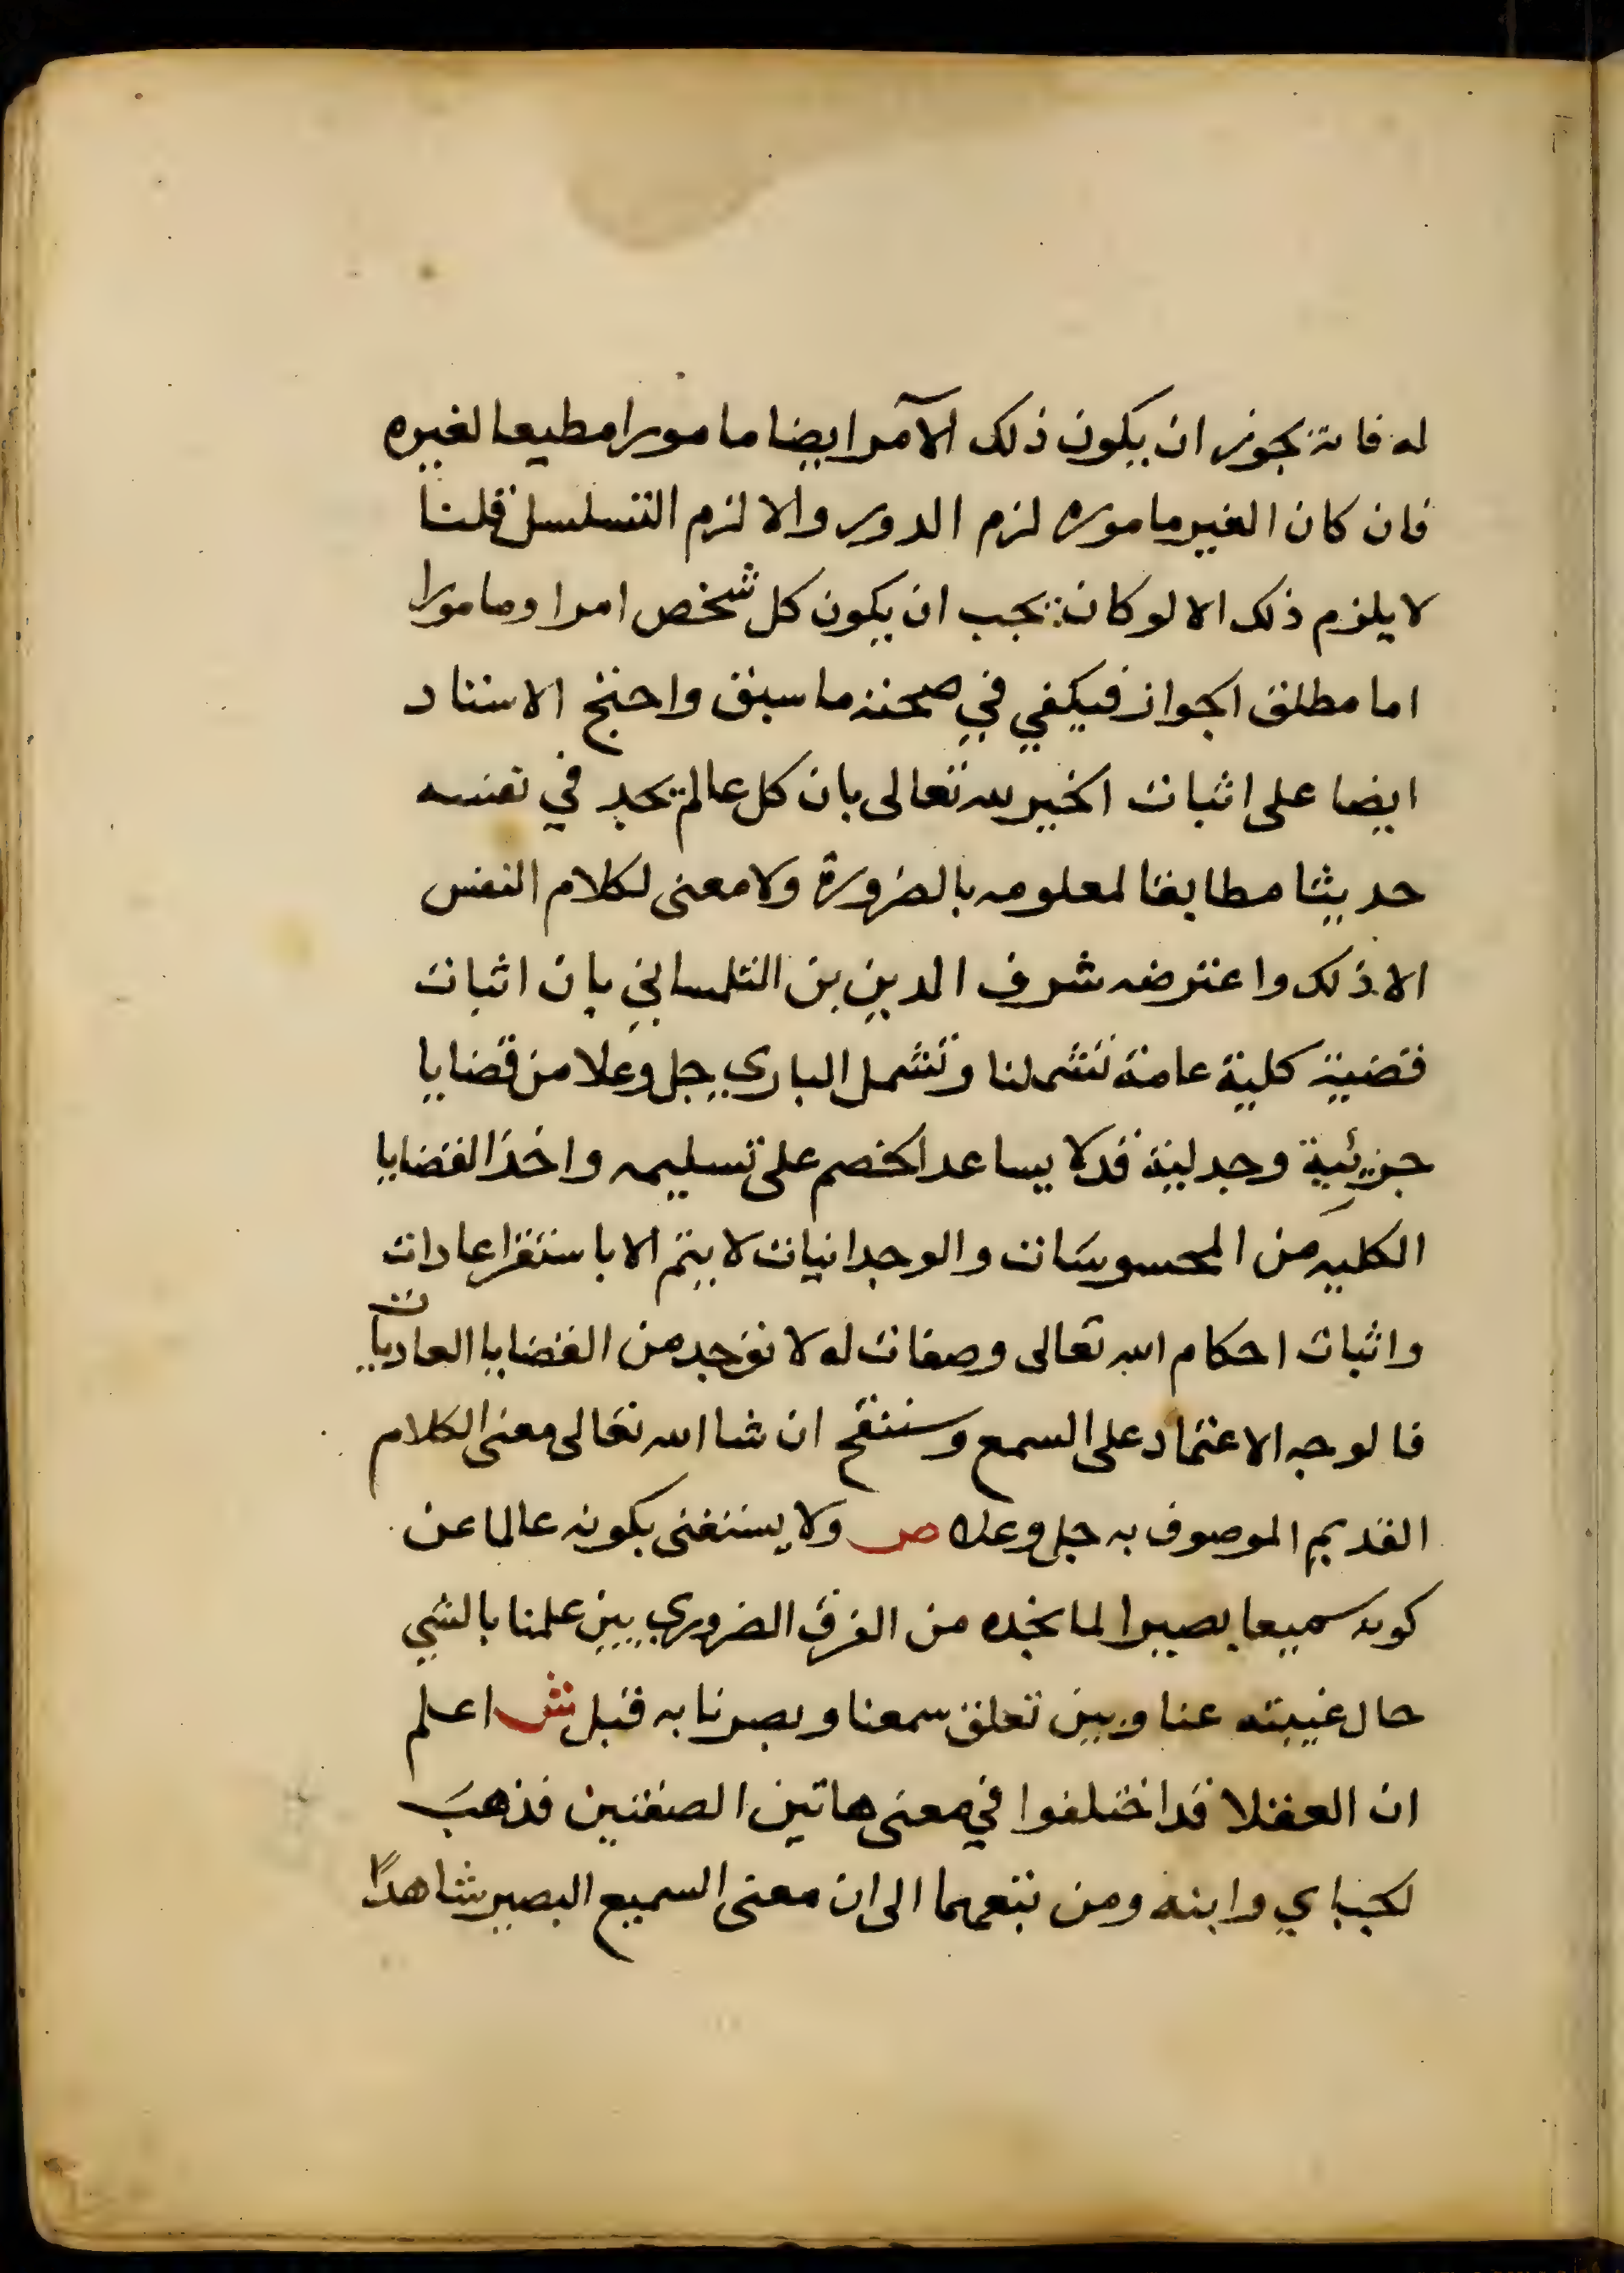 له فانه يجوز ان يكون ذلك الآمر ايضا مامورا مطيعا لغيره
فان كان الغير ماموره لزم الدور والا لزم التسلسل قلنا
لا يلزم ذلك الا لو كان يجب ان يكون كل شخص امرا ومامورا
اما مطلق الجواز فيكفي في صحته ما سبق واحتج الاستاد
ايضا على اثبات الخبر لله تعالى بان كل عالم يجد في نفسه
حديثا مطابقا لمعلومه بالضرورة ولا معنى لكلام النفس
الا ذلك واعترضه شرف الدين بن التلمساني بان اثبات
قضية كلية عامة تشملنا وتشمل الباري جل وعلا من قضايا
جزئية وجدلية قد لا يساعد الخصم على تسليمه واخذ القضايا
الكليه من المحسوسات والوجدانيات لا يتم الا باستقرا عادات
واثبات احكام الله تعالى وصفات له لا توخد من القضايا العاديات
فالوجه الاعتماد على السمع وسننقح ان شا الله تعالى معنى الكلام
القديم الموصوف به جل وعلا ص ولا يستغنى بكونه عالما عن
كونه سميعا بصيرا لما نجده من الفرق الضروري بين علمنا بالشي
حال غيبته عنا وبين تعلق سمعنا وبصرنا به قبل ش اعلم
ان العقلا قد اختلفوا في معنى هاتين الصفتين فذهب
لجباي وابنه ومن تبعهما الى ان معنى السميع البصير شاهدًا